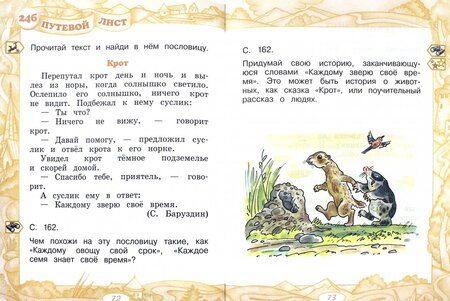 246 ПУТЕВОЙ ЛИСТ
Прочитай текст и найди в нём пословицу.
Крот
Перепутал крот день и ночь и вы-
лез из норы, когда солнышко светило.
Ослепило его солнышко, ничего крот
не видит. Подбежал к нему суслик:
— Ты что?
— Ничего не вижу, — говорит
крот.
— Давай помогу, — предложил сус-
лик и отвёл крота к его норке.
Увидел крот тёмное подземелье
и скорей домой.
— Спасибо тебе, приятель, — гово-
рит.
А суслик ему в ответ:
— Каждому зверю своё время.
(С. Баруздин)
С. 162.
Чем похожи на эту пословицу такие, как
«Каждому овощу свой срок», «Каждое
семя знает своё время»?
72
С. 162.
Придумай свою историю, заканчивающую-
юся словами «Каждому зверю своё вре-
мя». Это может быть история о живот-
ных, как сказка «Крот», или поучительный
рассказ о людях.
73